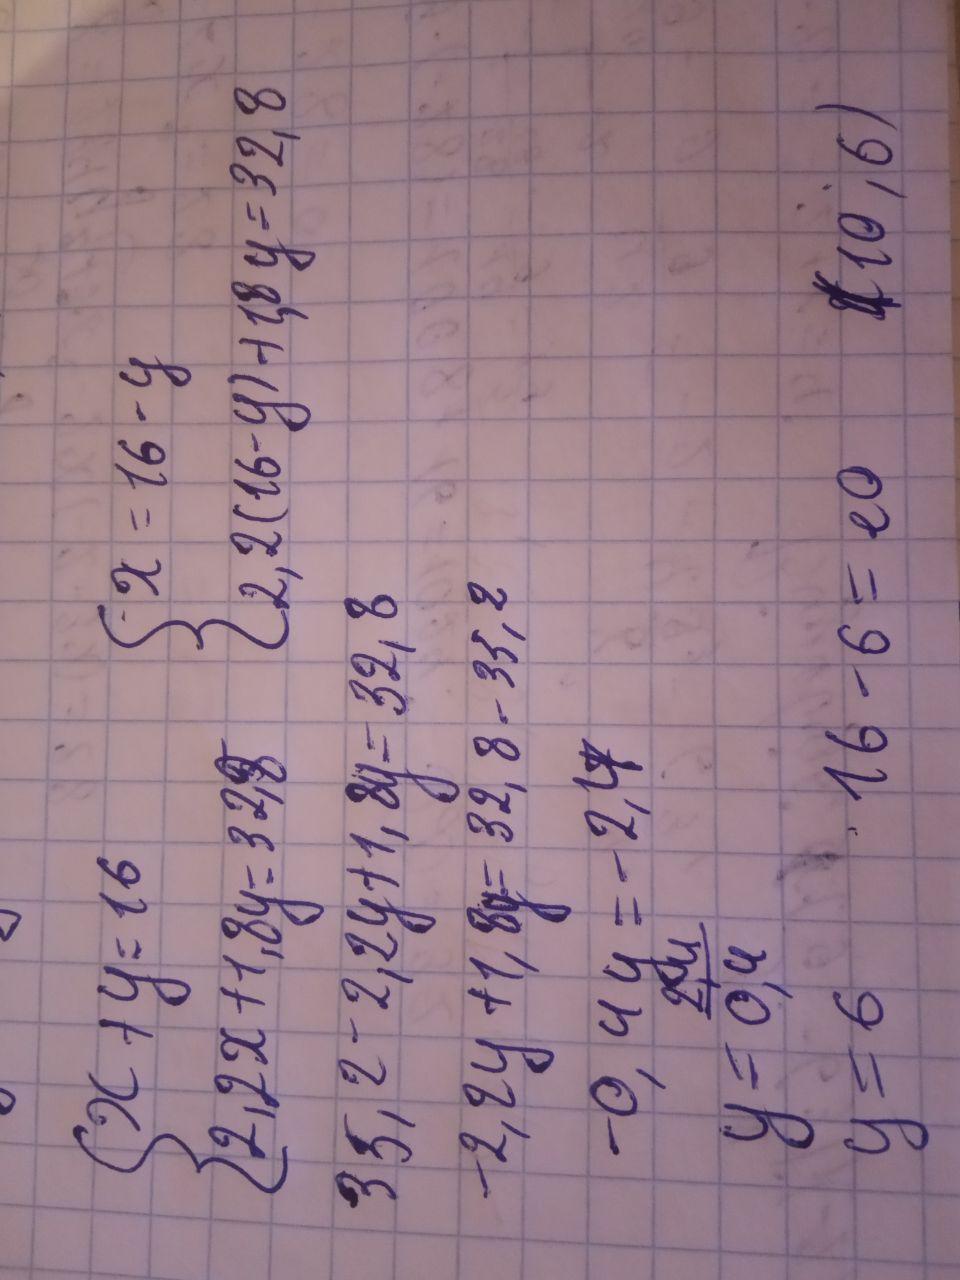 x + y = 16
x = 16 - y
2,2x + 1,8y = 32,8
2,2(16-y) + 1,8y = 32,8
35,2 - 2,2y + 1,8y = 32,8
-2,2y + 1,8y = 32,8 - 35,2
-0,4y = -2,4
y = 2,4/0,4
y = 6
16 - 6 = 10
(10; 6)